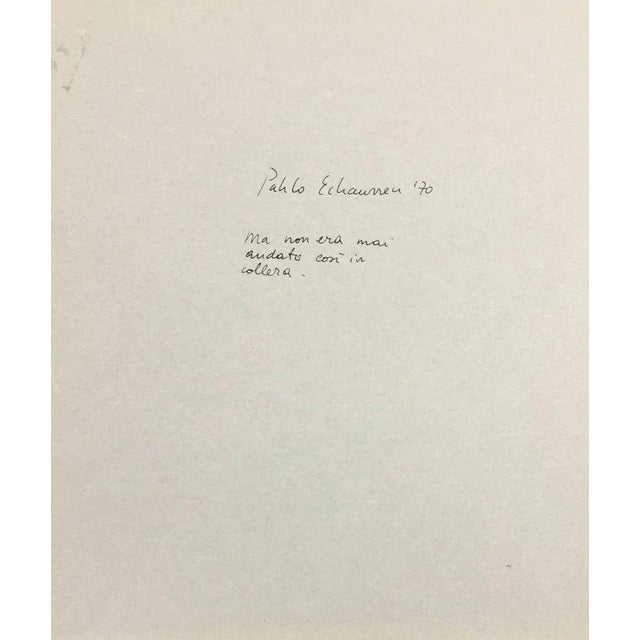 Pablo Echaurren '70
Ma non era mai
andato così in
collera.